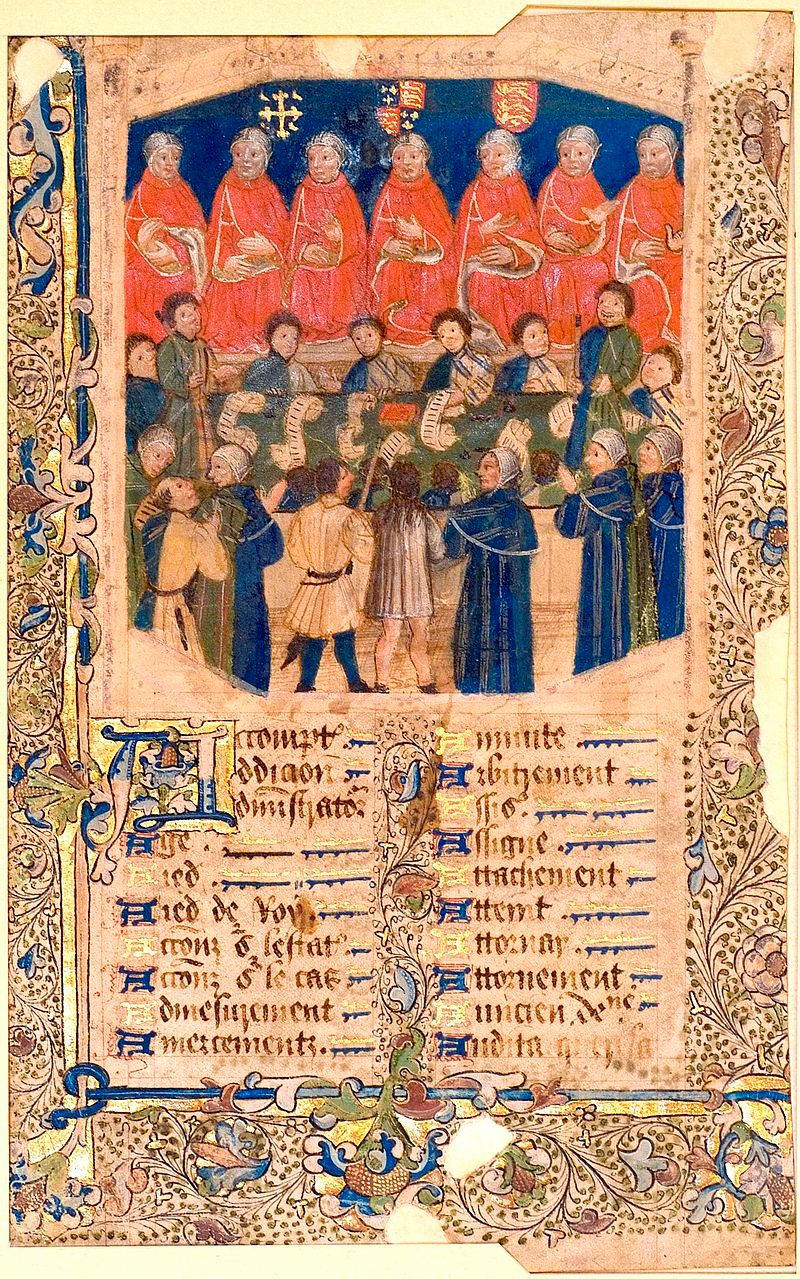 Accompt.
ddicion.
dm̄istrato2
Age.
Aied.
Aied de Roy.
Accionz s̉ lestat̉.
Accionz s̉ le cas
Admesurement
Amercementz.
Annuite.
Arbitrement
Assis̉.
Assigne.
Attachement
Atteint.
Attornay.
Attornement.
Auncien deñe
Audita